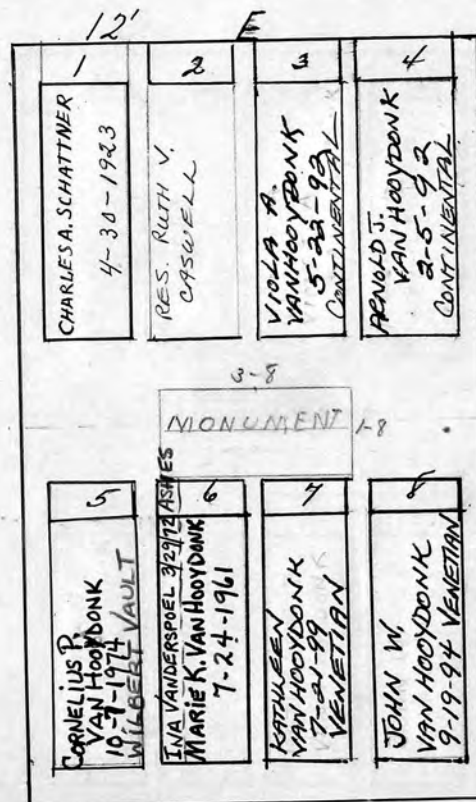 12'
E
1
CHARLES A. SCHATTNER
4-30-1923
2
RES. RUTH V.
CASWELL
3
VIOLA A.
VANHOOYDONK
5-22-93
CONTINENTAL
4
ARNOLD J.
VAN HOOYDONK
2-5-92
CONTINENTAL
3-8
MONUMENT
1-8
5
CORNELIUS P.
VAN HOOYDONK
10-7-1974
WILBERT VAULT
6
INA VANDERSPOEL 3/29/72 ASHES
MARIE K. VAN HOOYDONK
7-24-1961
7
KATHLEEN
VAN HOOYDONK
7-21-99
VENETIAN
8
JOHN W.
VAN HOOYDONK
9-19-94 VENETIAN